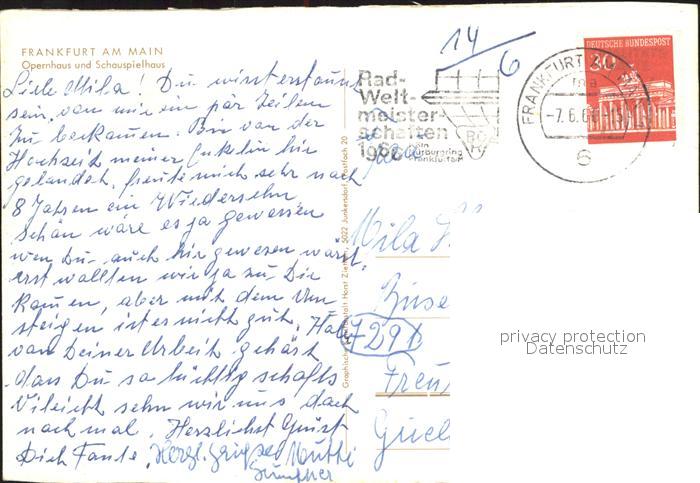 FRANKFURT AM MAIN
Opernhaus und Schauspielhaus
Liebe Mila! Du wirst erstaunt
sein von mir ein par Zeilen
zu bekomen. Bin von der
Hochzeit meiner Enkelin hir
gelandet. freute mich sehr nach
8 Jahren ein Wiedersehn
schön wäre es ja gewesen
wen Du auch hir gewesen wärst,
erst wollten wir ja zu Dir
komen, aber mit dem Um
steigen ist es nicht gut. Habe
von Deiner Arbeit gehört
dass Du so tüchtig schaffs
Vileicht sehn wir uns doch
noch mal. Herzlichst Grüst
Dich Tante. Herzl. Grüsse Mutti
Günther
14/6
Rad-
Welt-
meister-
schaften
1966
Köln
Nürburgring
Frankfurt/M
FRANKFURT
-7.6.66
6
DEUTSCHE BUNDESPOST
30
Graphische Kunstanstalt Horst Ziethen, 5022 Junkersdorf, Postfach 20
Mila
7291
Freu
privacy protection
Datenschutz